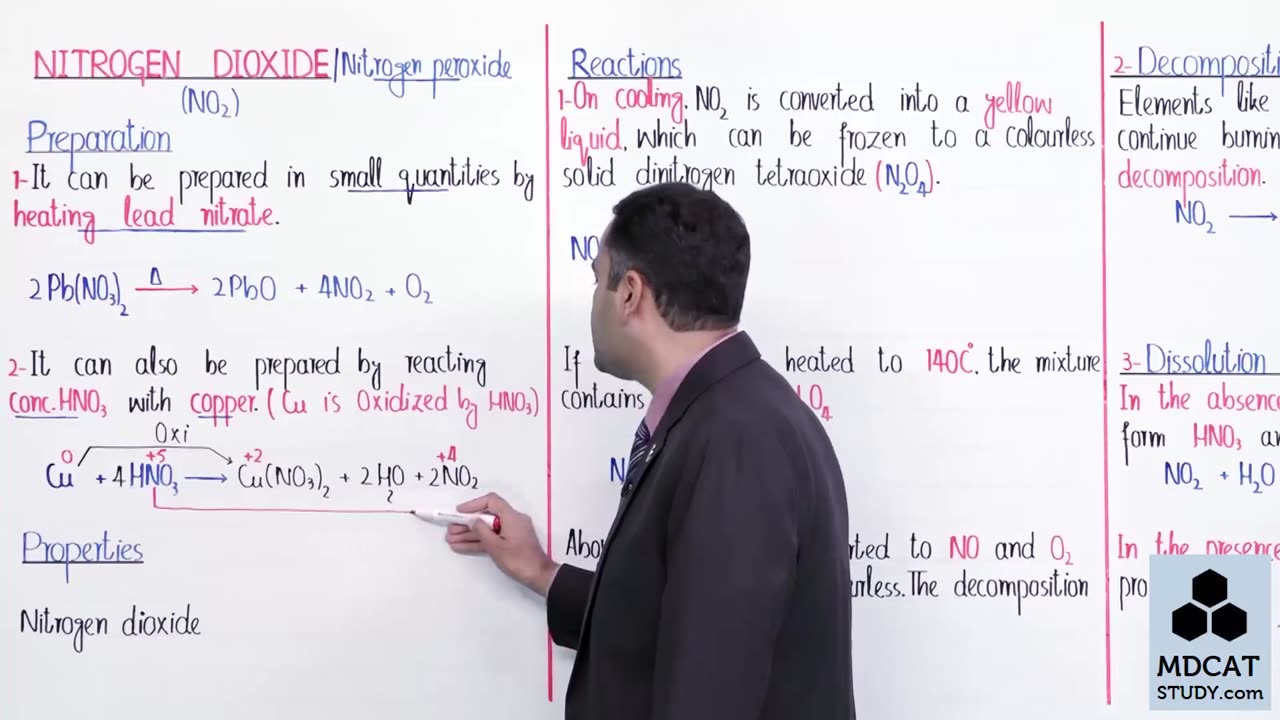 NITROGEN DIOXIDE/Nitrogen peroxide
(NO₂)
Preparation
1-It can be prepared in small quantities by
heating lead nitrate.
2Pb(NO₃)₂ →Δ 2PbO + 4NO₂ + O₂
2-It can also be prepared by reacting
conc.HNO₃ with copper.(Cu is Oxidized by HNO₃)
Oxi
0 +5 +2 +4
Cu + 4HNO₃ → Cu(NO₃)₂ + 2H₂O + 2NO₂
Properties
Nitrogen dioxide
Reactions
1-On cooling, NO₂ is converted into a yellow
liquid, which can be frozen to a colourless
solid dinitrogen tetraoxide (N₂O₄).
NO
If heated to 140C°. the mixture
contains O₄
N
to NO and O₂
The decomposition
2-Decompositi
Elements like
continue burnin
decomposition.
NO₂ →
3-Dissolution
In the absence
form HNO₃ an
NO₂ + H₂O
In the presence
pro
MDCAT
STUDY.com